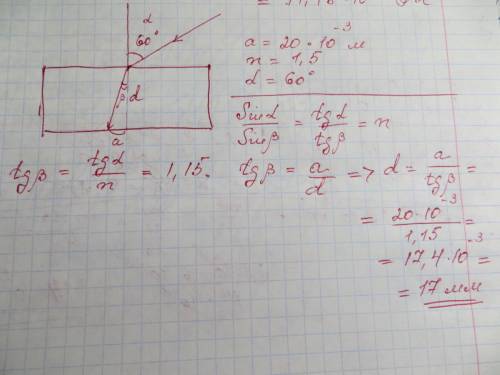 = 17,16 · 10
α
60°
β
d
a
a = 20 · 10⁻³ м
n = 1,5
α = 60°
Sinα / Sinβ = tgα / tgβ = n
tgβ = tgα / n = 1,15.
tgβ = a / d => d = a / tgβ =
= 20·10⁻³ / 1,15 =
= 17,4·10⁻³ =
= 17 мм